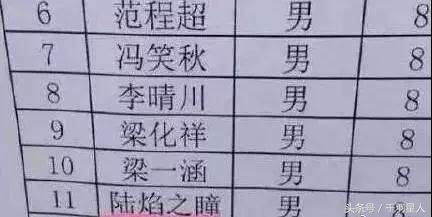 6 范程超 男 8
7 冯笑秋 男 8
8 李晴川 男 8
9 梁化祥 男 8
10 梁一涵 男 8
11 陆焰之瞳 男
头条号/千里星人